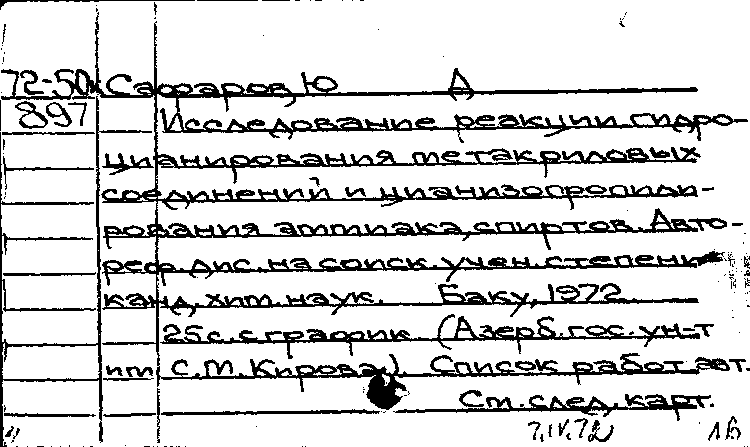 72-50к Сафаров, Ю А
897 Исследование реакции гидро-
цианирования метакриловых
соединений и цианизопропили-
рования аммиака, спиртов. Авто-
реф. дис. на соиск. учен. степени
канд. хим. наук. Баку, 1972.
25 с. с график. (Азерб. гос. ун-т
им. С.М. Кирова). Список работ авт.
См. след. карт.
7.IV.72